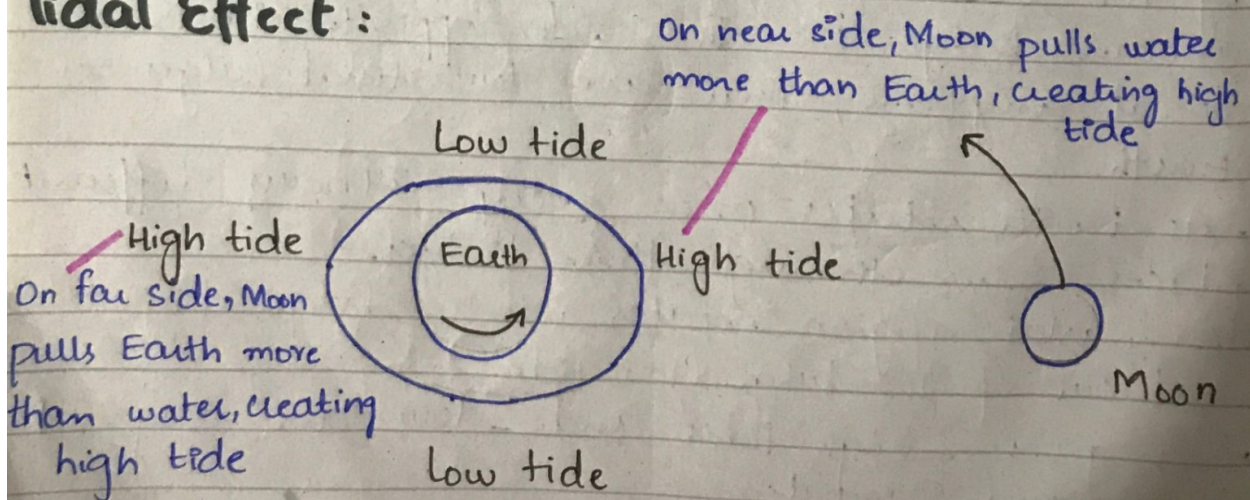 Tidal Effect :
On near side, Moon pulls water
more than Earth, creating high
tide
Low tide
High tide
Earth
High tide
On far side, Moon
pulls Earth more
than water, creating
high tide
Moon
Low tide